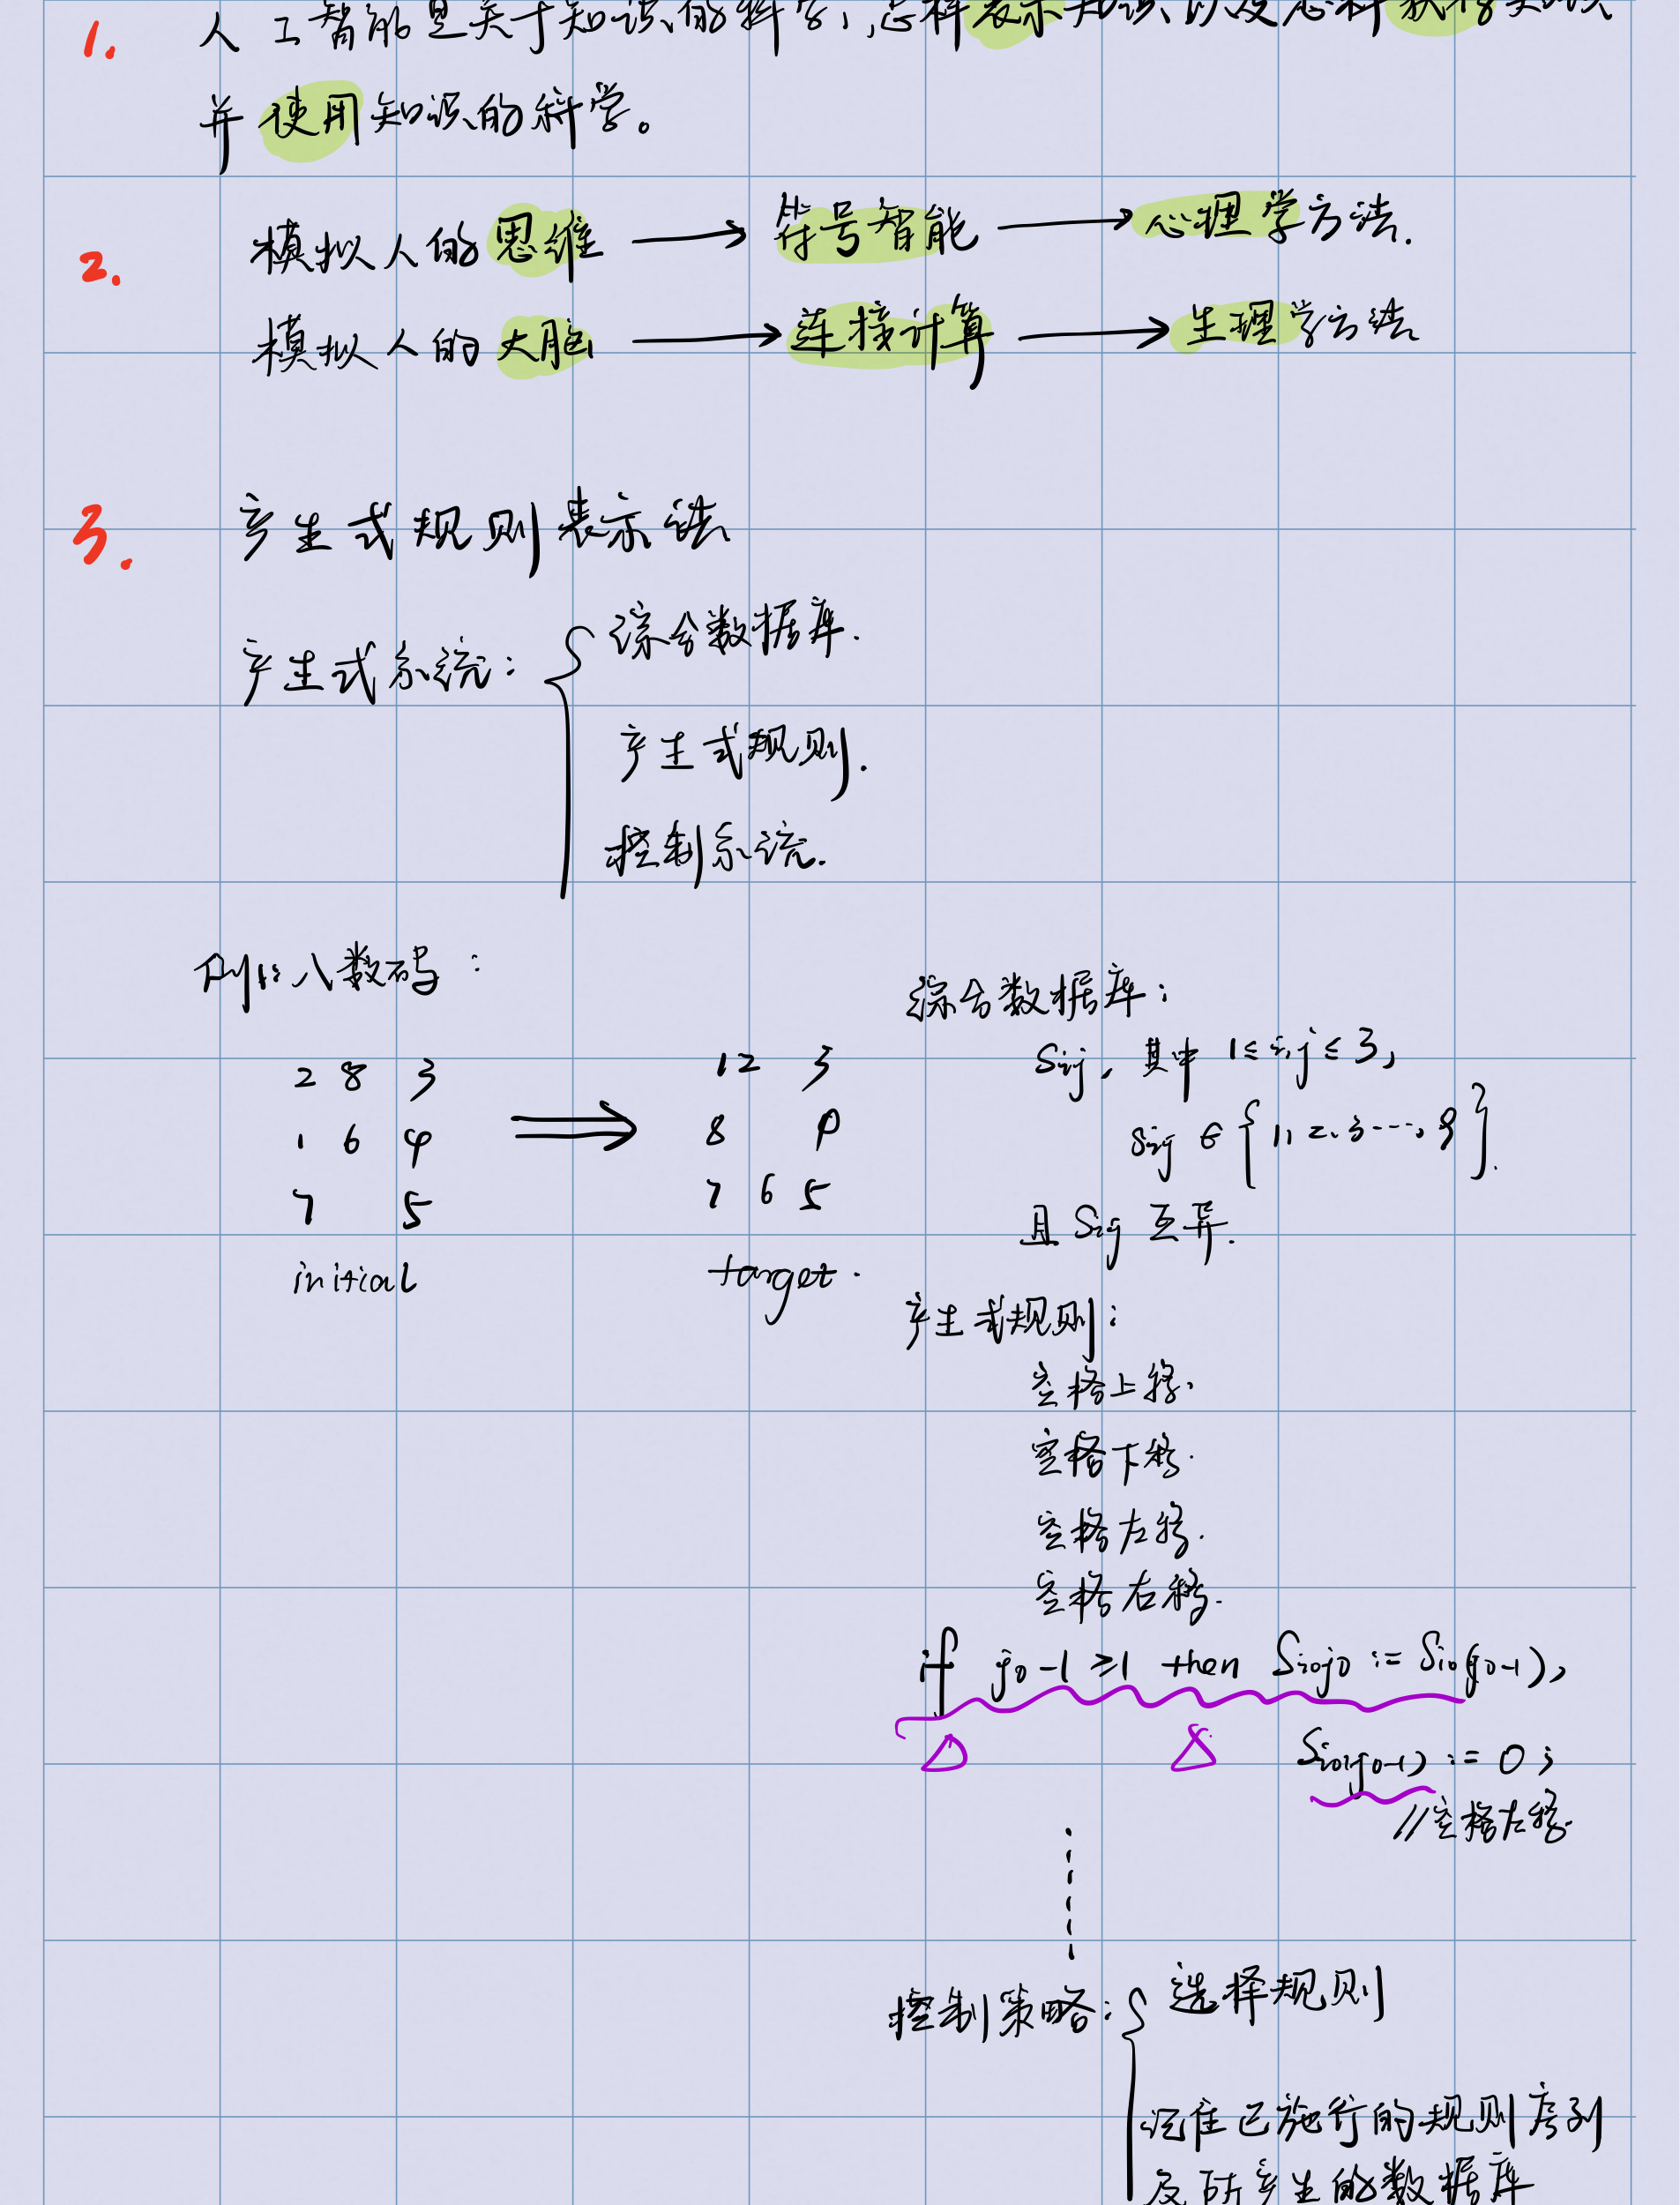 1. 人工智能是关于知识的科学,怎样表示知识以及怎样获得知识
并使用知识的科学。
2. 模拟人的思维 → 符号智能 → 心理学方法.
模拟人的大脑 → 连接计算 → 生理学方法
3. 产生式规则表示法
产生式系统: { 综合数据库.
产生式规则.
控制系统.
八数码:
2 8 3
1 6 4
7 5
initial
⇒
1 2 3
8 4
7 6 5
target.
综合数据库:
Sij, 其中 1≤i,j≤3,
Sij ∈ {1, 2, 3 ..., 8}.
且 Sij 互异.
产生式规则:
空格上移.
空格下移.
空格左移.
空格右移.
if j0-1≥1 then Si0j0 := Si0(j0-1),
Si0(j0-1) := 0;
//空格左移.
控制策略: { 选择规则
记住已施行的规则序列
及所产生的数据库